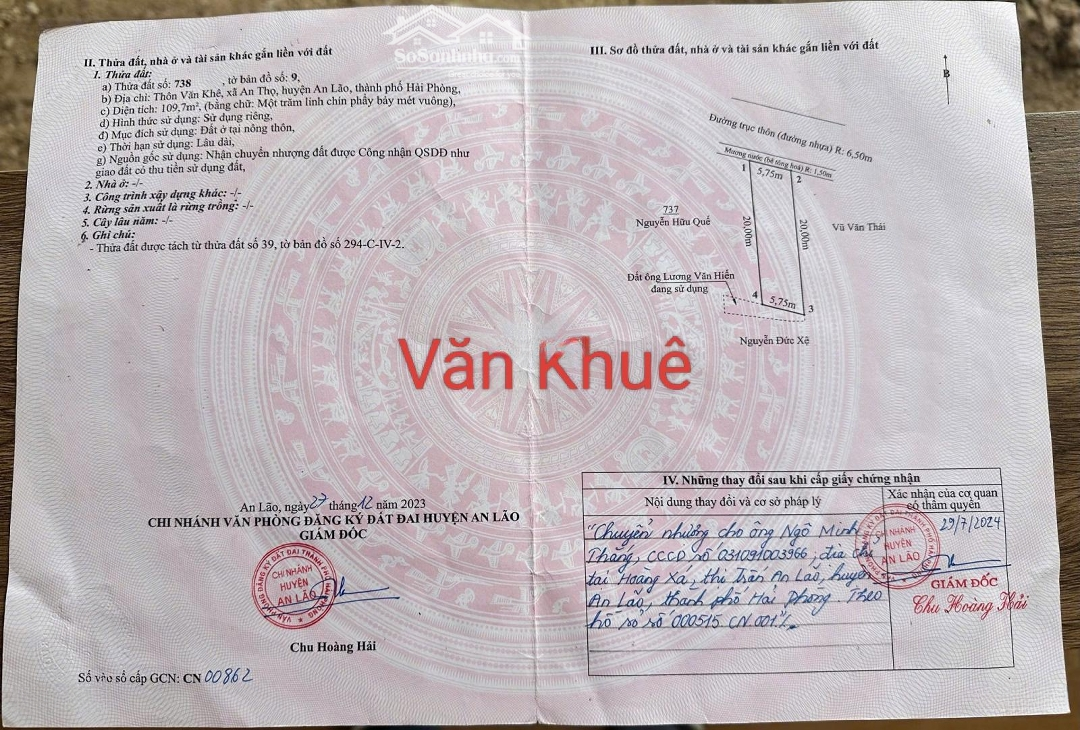 SoSanNha.com
II. Thửa đất, nhà ở và tài sản khác gắn liền với đất
1. Thửa đất:
a) Thửa đất số: 738 , tờ bản đồ số: 9,
b) Địa chỉ: Thôn Văn Khê, xã An Thọ, huyện An Lão, thành phố Hải Phòng,
c) Diện tích: 109,7m², (bằng chữ: Một trăm linh chín phẩy bảy mét vuông),
d) Hình thức sử dụng: Sử dụng riêng,
đ) Mục đích sử dụng: Đất ở tại nông thôn,
e) Thời hạn sử dụng: Lâu dài,
g) Nguồn gốc sử dụng: Nhận chuyển nhượng đất được Công nhận QSDĐ như
giao đất có thu tiền sử dụng đất,
2. Nhà ở: -/-
3. Công trình xây dựng khác: -/-
4. Rừng sản xuất là rừng trồng: -/-
5. Cây lâu năm: -/-
6. Ghi chú:
- Thửa đất được tách từ thửa đất số 39, tờ bản đồ số 294-C-IV-2.
An Lão, ngày 27 tháng 12 năm 2023
CHI NHÁNH VĂN PHÒNG ĐĂNG KÝ ĐẤT ĐAI HUYỆN AN LÃO
GIÁM ĐỐC
CHI NHÁNH
HUYỆN
AN LÃO
Chu Hoàng Hải
Số vào sổ cấp GCN: CN 00862
Văn Khuê
III. Sơ đồ thửa đất, nhà ở và tài sản khác gắn liền với đất
B
Đường trục thôn (đường nhựa) R: 6,50m
Mương nước (bê tông hoá) R: 1,50m
1
5,75m
2
737
Nguyễn Hữu Quế
20,00m
20,00m
Vũ Văn Thái
Đất ông Lương Văn Hiển
đang sử dụng
4
5,75m
3
Nguyễn Đức Xệ
IV. Những thay đổi sau khi cấp giấy chứng nhận
Nội dung thay đổi và cơ sở pháp lý
Xác nhận của cơ quan
có thẩm quyền
"Chuyển nhượng cho ông Ngô Minh
Thắng, CCCD số 031091003966, địa chỉ
tại Hoàng Xá, thị trấn An Lão, huyện
An Lão, thành phố Hải Phòng. Theo
hồ sơ số 000515.CN.001".
29/7/2024
CHI NHÁNH
HUYỆN
AN LÃO
GIÁM ĐỐC
Chu Hoàng Hải